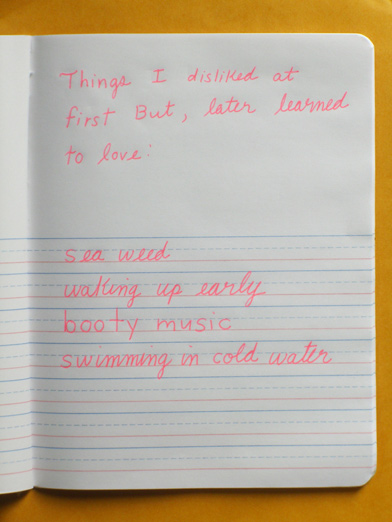 Things I disliked at
first But, later learned
to love:
sea weed
waking up early
booty music
swimming in cold water